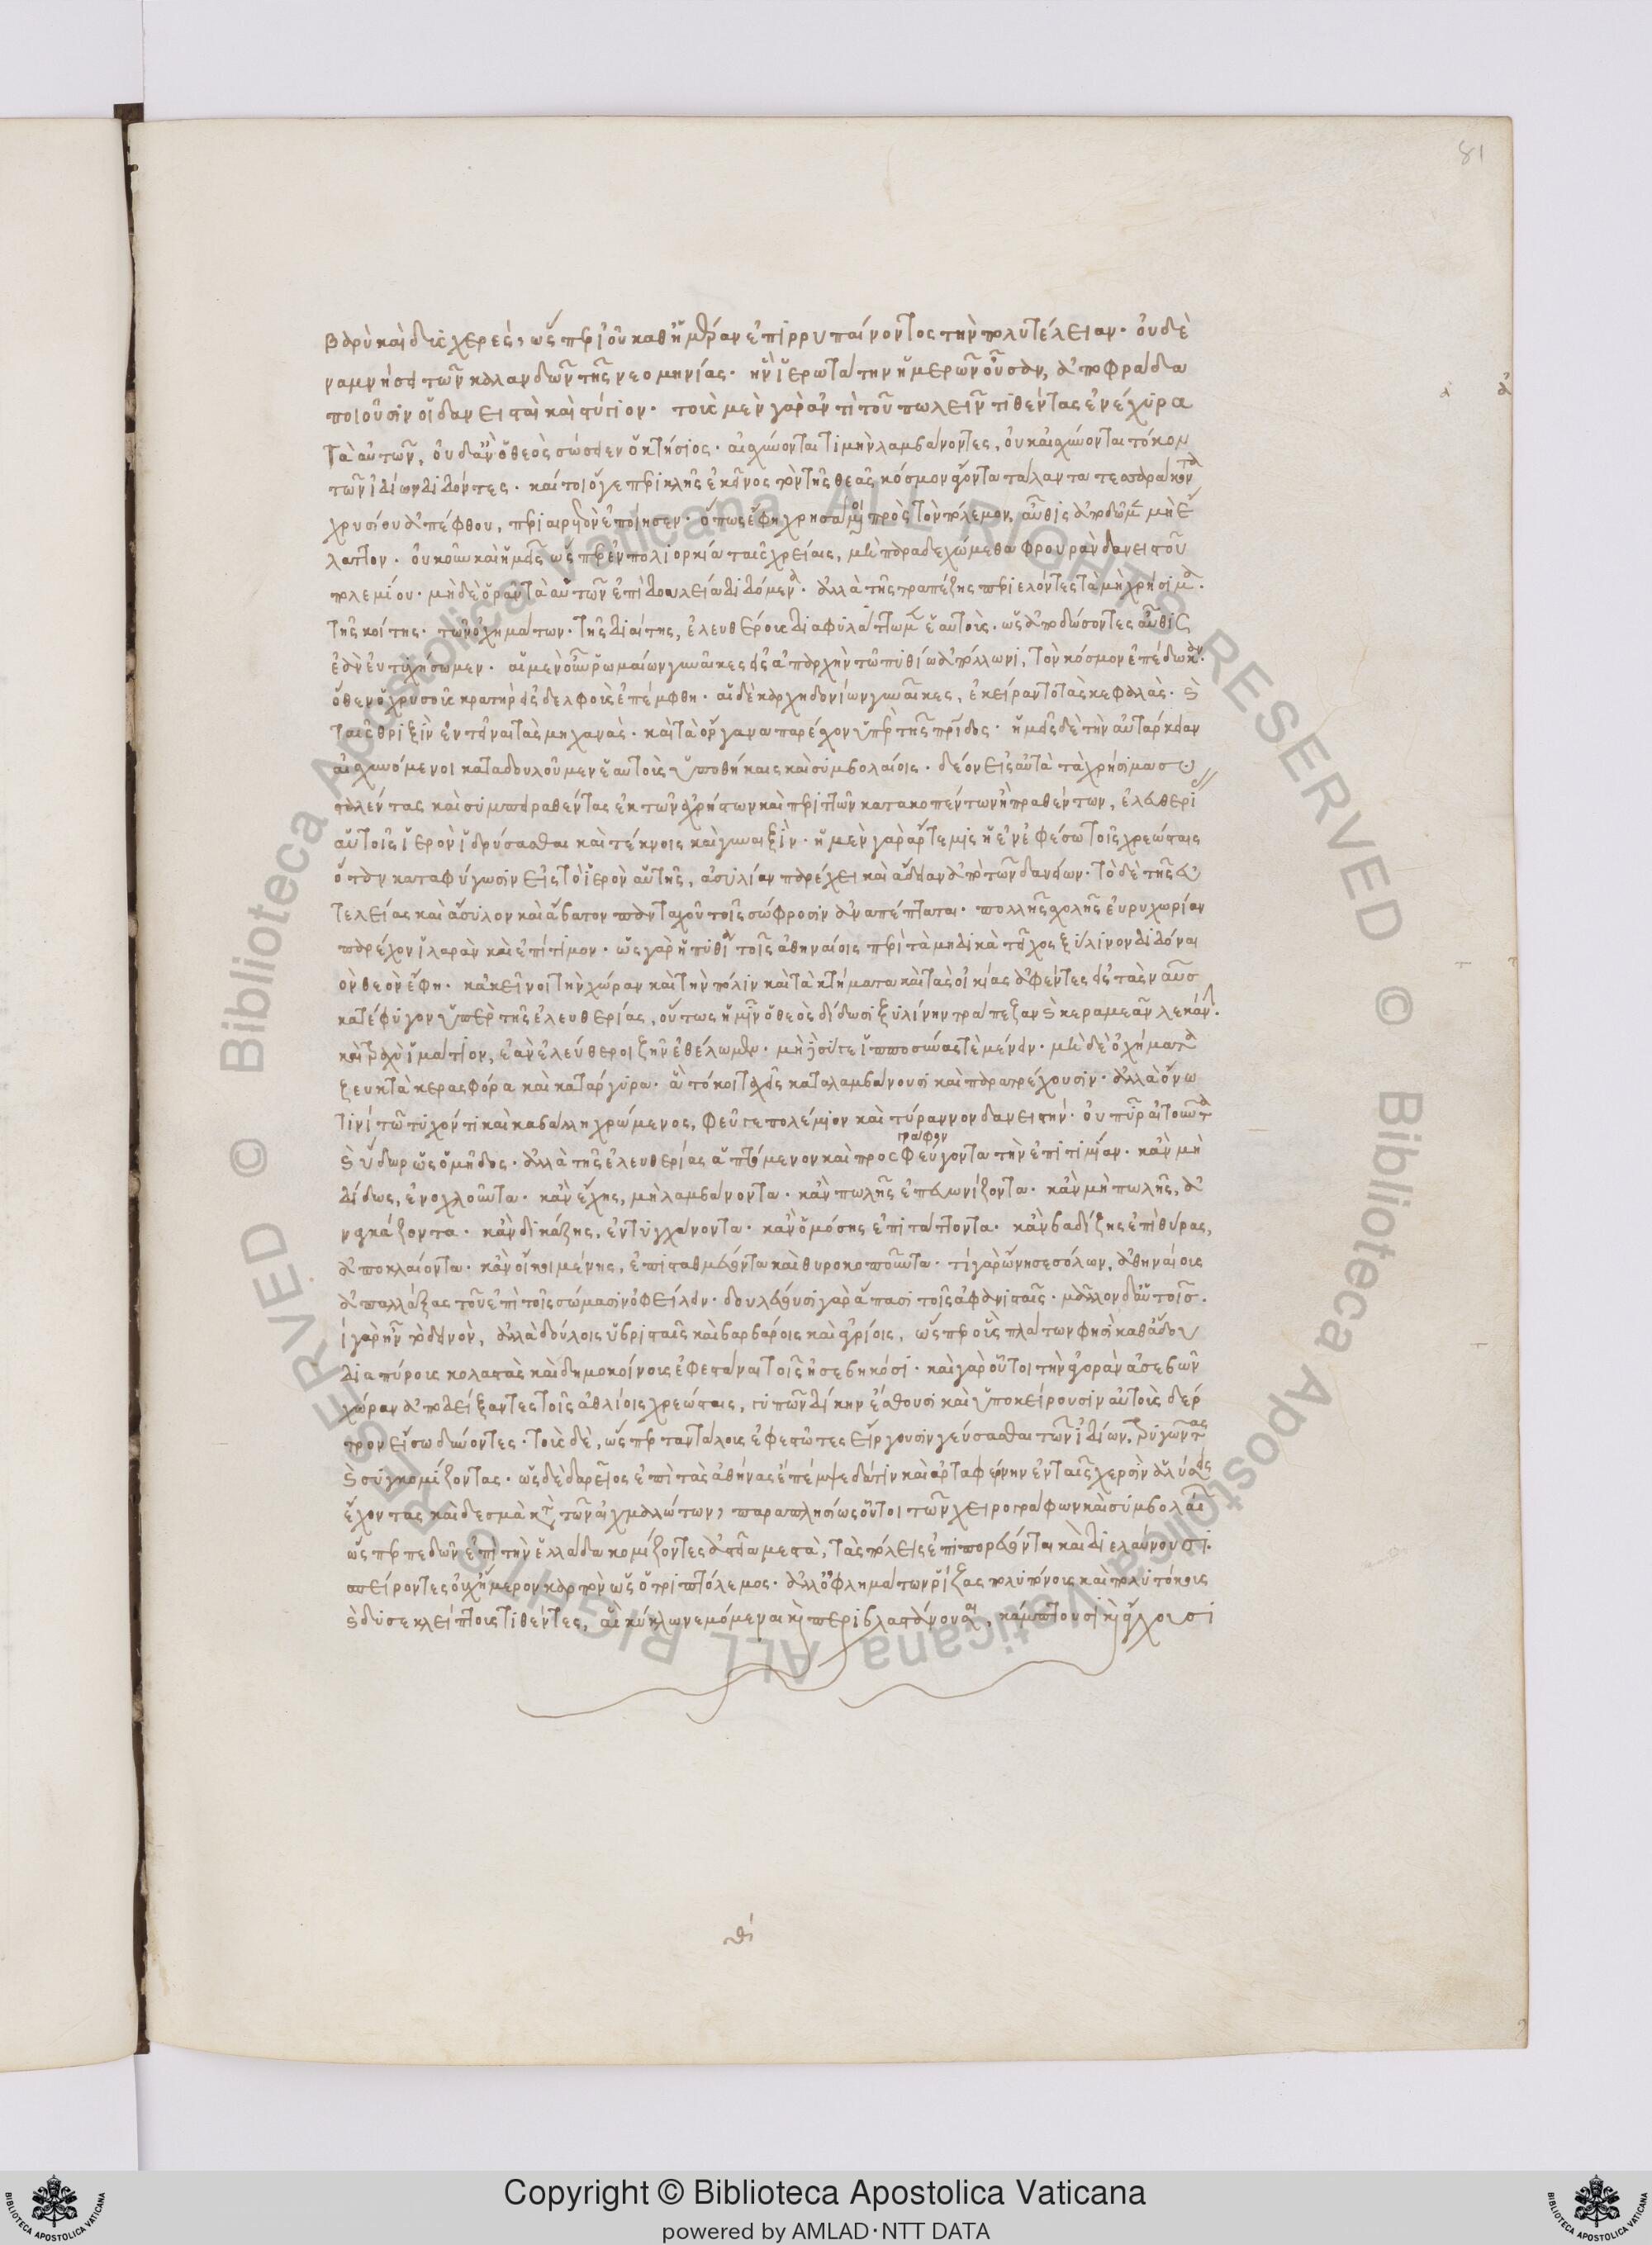 βαρὺ καὶ δυσχερές, ὥσπερ ἰοῦ καθ' ἡμέραν ἐπιρρυπαίνοντος τὴν πολυτέλειαν· οὐδὲ
ναμνήσει τῶν καλανδῶν τῆς νεομηνίας· ἣν ἱερωτάτην ἡμερῶν οὖσαν, ἀποφράδα
ποιοῦσιν οἱ δανεισταὶ καὶ στύγιον· τοὺς μὲν γὰρ ἀντὶ τοῦ πωλεῖν τιθέντας ἐνέχυρα
τὰ αὐτῶν, οὐδ' ἂν ὁ θεὸς σώσειεν ὁ κτήσιος· αἰσχύνονται τιμὴν λαμβάνοντες, οὐκ αἰσχύνονται τόκον
τῶν ἰδίων διδόντες· καίτοι ὅγε περικλῆς ἐκεῖνος τὸν τῆς θεᾶς κόσμον ἄγοντα τάλαντα τεσσαράκοντα
χρυσίου ἀπέφθου, περιαιρετὸν ἐποίησεν· ὅπως ἔφη χρησάμενοι πρὸς τὸν πόλεμον, αὖθις ἀποδῶμεν μὴ ἔ
λαττον· οὐκοῦν καὶ ἡμεῖς ὥσπερ ἐν πολιορκία ταῖς χρείαις, μὴ παραδεχώμεθα φρουρὰν δανειστοῦ
πολεμίου· μὴδὲ ὁρᾶν τὰ αὑτῶν ἐπὶ δουλεία διδόμενα· ἀλλὰ τῆς τραπέζης περιελόντες τὰ μὴ χρήσιμα·
τῆς κοίτης· τῶν ὀχημάτων· τῆς διαίτης, ἐλευθέρους διαφυλάττωμεν ἑαυτούς· ὡς ἀποδώσοντες αὖθις
ἐὰν εὐτυχήσωμεν· αἱ μὲν οὖν ῥωμαίων γυναῖκες εἰς ἀπαρχὴν τῶ πυθίω ἀπόλλωνι, τὸν κόσμον ἐπέδωκαν·
ὅθεν ὁ χρυσοῦς κρατὴρ εἰς δελφοὺς ἐπέμφθη· αἱ δὲ καρχηδονίων γυναῖκες, ἐκείραντο τὰς κεφαλὰς· καὶ
ταῖς θριξὶν ἐντεῖναι τὰς μηχανὰς· καὶ τὰ ὄργανα παρέσχον ὑπὲρ τῆς πατρίδος· ἡμεῖς δὲ τὴν αὐτάρκειαν
αἰσχυνόμενοι καταδουλοῦμεν ἑαυτοὺς ὑποθήκαις καὶ συμβολαίοις· δέον εἰς αὐτὰ τὰ χρήσιμα συ
σταλέντας καὶ συμπραθέντας ἐκ τῶν ἀχρήστων καὶ περιττῶν κατακοπέντων ἢ πραθέντων, ἐλευθερί
αὑτοῖς ἱερὸν ἱδρύσασθαι καὶ τέκνοις καὶ γυναιξὶν· ἡ μὲν γὰρ ἄρτεμις ἡ ἐν ἐφέσω τοῖς χρεώσταις
ὅταν καταφύγωσιν εἰς τὸ ἱερὸν αὐτῆς, ἀσυλίαν παρέχει καὶ ἄδειαν ἀπὸ τῶν δανείων· τὸ δὲ τῆς εὐ
τελείας καὶ ἄσυλον καὶ ἄβατον πανταχοῦ τοῖς σώφροσιν ἀναπέπταται· πολλῆς σχολῆς εὐρυχωρίαν
παρέχον ἱλαρὰν καὶ ἐπίτιμον· ὡς γὰρ ἡ πυθία τοῖς ἀθηναίοις περὶ τὰ μηδικὰ τεῖχος ξύλινον διδόναι
ὸν θεὸν ἔφη· κἀκεῖνοι τὴν χώραν καὶ τὴν πόλιν καὶ τὰ κτήματα καὶ τὰς οἰκίας ἀφέντες εἰς τὰς ναῦς
κατέφυγον ὑπὲρ τῆς ἐλευθερίας, οὕτως ἡμῖν ὁ θεὸς δίδωσι ξυλίνην τράπεζαν καὶ κεραμεᾶν λεκάνην·
καὶ τραχὺ ἱμάτιον, ἐὰν ἐλεύθεροι ζῆν ἐθέλωμεν· μὴ ἱπποσύνας τὲ μένειν· μὴδὲ ὀχήματα
ζευκτὰ κερασφόρα καὶ κατάργυρα· ἃ τόκοι ταχεῖς καταλαμβάνουσι καὶ παρατρέχουσιν· ἀλλὰ ὄνω
τινὶ τῶ τυχόντι καὶ καβάλλη χρώμενος, φεῦγε πολέμιον καὶ τύραννον δανειστήν· οὐ πῦρ αἰτοῦντα
καὶ ὕδωρ ὡς ὁ μῆδος· ἀλλὰ τῆς ἐλευθερίας ἁπτόμενον καὶ προσφεύγοντα τὴν ἐπιτιμίαν· κἂν μὴ
γράφον
διδως, ἐνοχλοῦντα· κἂν ἔχης, μὴ λαμβάνοντα· κἂν πωλῆς ἐπευωνίζοντα· κἂν μὴ πωλῆς, ἀ
ναγκάζοντα· κἂν δικάζης, ἐντυγχάνοντα· κἂν ὀμόσης ἐπιτάττοντα· κἂν βαδίζης ἐπὶ θύρας,
ἀποκλαίοντα· κἂν οἴκοι μένης, ἐπισταθμεύοντα καὶ θυροκοποῦντα· τί γὰρ ὤνησε σόλων, ἀθηναίους
ἀπαλλάξας τοῦ ἐπὶ τοῖς σώμασιν ὀφείλειν· δουλεύουσι γὰρ ἅπασι τοῖς ἀφανισταῖς· μᾶλλον δ' αὐτοῖς·
ί γὰρ ἦν τὸ δεινὸν, ἀλλὰ δούλοις ὑβρισταῖς καὶ βαρβάροις καὶ ἀγρίοις, ὥσπερ οὓς πλάτων φησὶ καθ' ἅδου
διαπύρους κολαστὰς καὶ δημοκοίνους ἐφεστάναι τοῖς ἠσεβηκόσι· καὶ γὰρ οὗτοι τὴν ἀγορὰν ἀσεβῶν
χώραν ἀποδείξαντες τοῖς ἀθλίοις χρεώσταις, γυπῶν δίκην ἔσθουσι καὶ ὑποκείρουσιν αὐτοὺς δέρ
τρον εἴσω δύνοντες· τοὺς δὲ, ὥσπερ ταντάλους ἐφεστῶτες εἴργουσιν γεύσασθαι τῶν ἰδίων, τρυγῶντας
καὶ συγκομίζοντας· ὡς δὲ δαρεῖος ἐπὶ τὰς ἀθήνας ἔπεμψε δάτιν καὶ ἀρταφέρνην ἐν ταῖς χερσὶν ἁλύσεις
ἔχοντας καὶ δεσμὰ κατὰ τῶν αἰχμαλώτων, παραπλησίως οὗτοι τῶν χειρογράφων καὶ συμβολαί
ὥσπερ πεδῶν ἐπὶ τὴν ἑλλάδα κομίζοντες ἀγγεῖα μεστὰ, τὰς πόλεις ἐπιπορεύονται καὶ διελαύνουσι·
σπείροντες οὐχ ἥμερον καρπὸν ὡς ὁ τριπτόλεμος· ἀλλ' ὀφλημάτων ῥίζας πολυπόνους καὶ πολυτόκους
καὶ δυσεκλείπτους τιθέντες, αἳ κύκλω νεμόμεναι καὶ περιβλαστάνουσαι, κάμπτουσι καὶ ἄγχουσι
θι
81
Copyright © Biblioteca Apostolica Vaticana
powered by AMLAD·NTT DATA